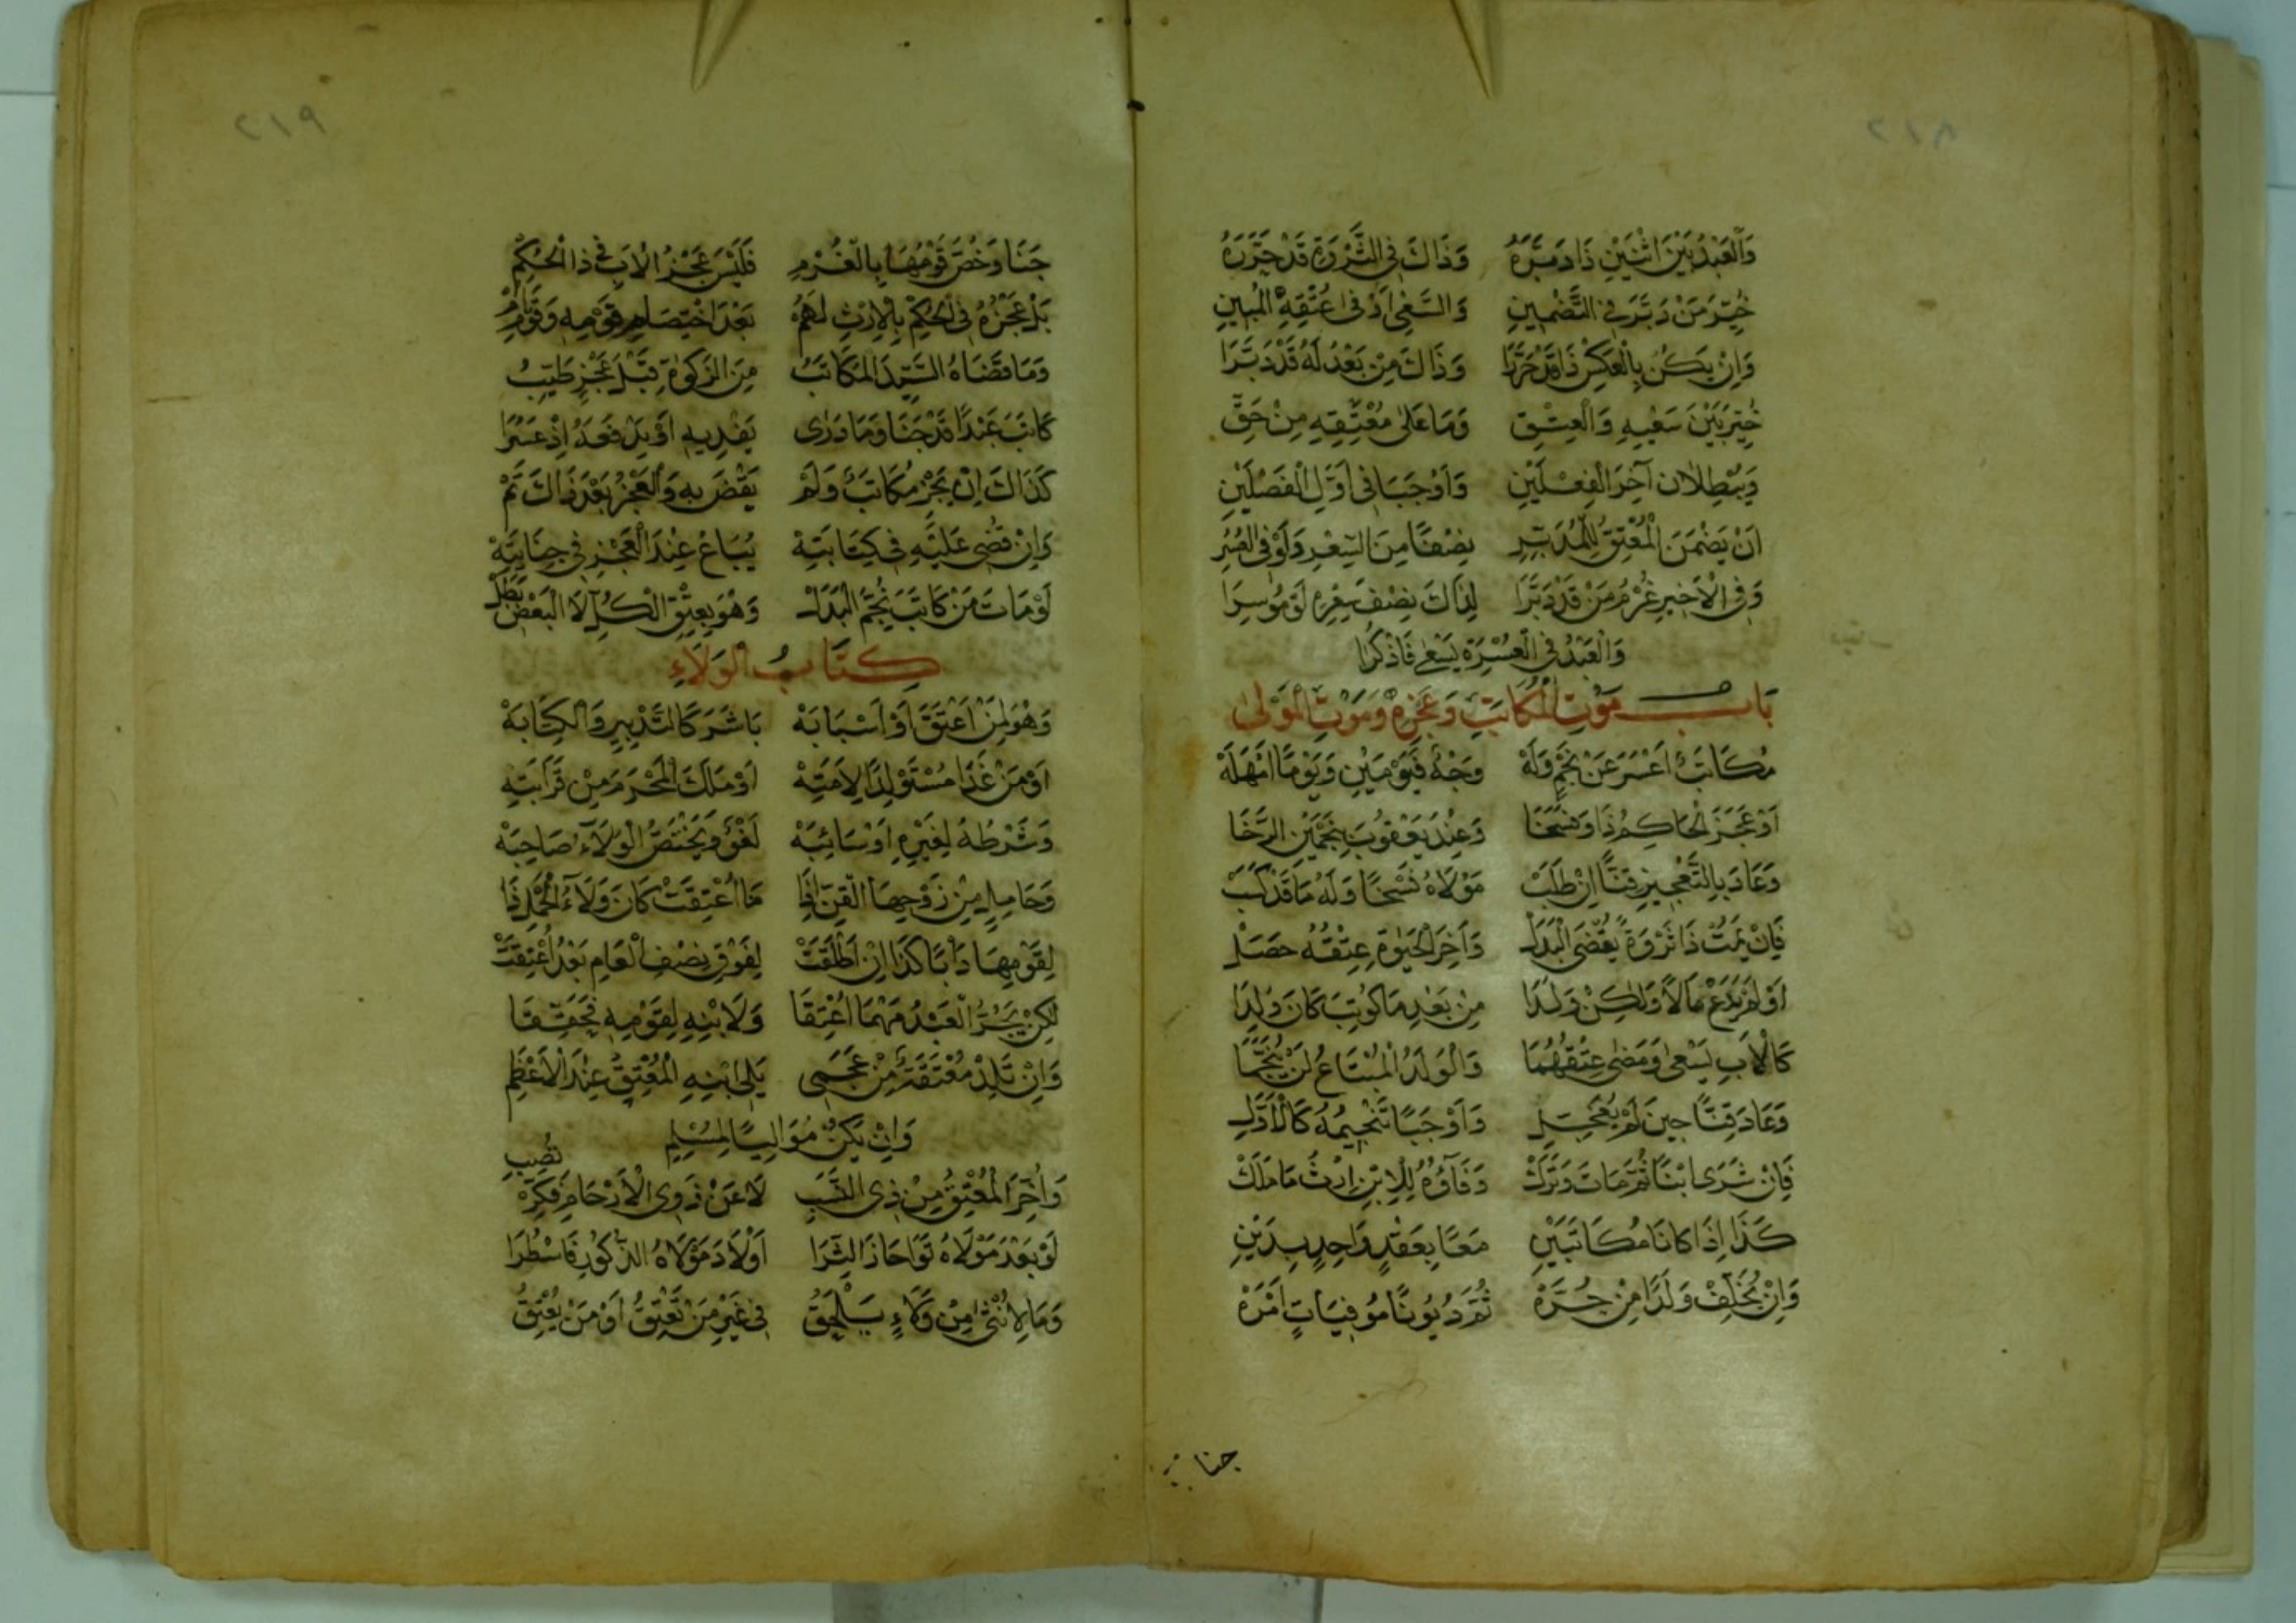 ٢١٨
وَالْعَبْدُ بَيْنَ اثْنَيْنِ ذَا دَبَّرَهُ وَذَاكَ فِي الثَّرْوَةِ قَدْ حَرَّرَهُ
خُيِّرَ مَنْ دَبَّرَ فِي التَّضْمِينِ وَالسَّعْيِ اَوْ فِي عُتْقِهِ الْمُبِينِ
وَاِنْ يَكُنْ بِالْعَكْسِ ذَا قَدْ حَرَّرَا وَذَاكَ مِنْ بَعْدُ لَهُ قَدْ دَبَّرَا
خُيِّرَ بَيْنَ سَعْيِهِ وَالْعِتْقِ وَمَا عَلَى مُعْتِقِهِ مِنْ حَقِّ
وَيُبْطِلَان آخِرَ الْفِعْلَيْنِ وَاَوْجَبَا فِي اَوَّلِ الْفَصْلَيْنِ
اَنْ يَضْمَنَ الْمُعْتِقُ لِلْمُدَبِّرِ نِصْفًا مِنَ السِّعْرِ وَلَوْ فِي الْعُسُرِ
وَفِي الْاَخِيرِ غُرْمُ مَنْ قَدْ دَبَّرَا لِذَاكَ نِصْفَ سِعْرِهِ لَوْ مُوسِرَا
وَالْعَبْدُ فِي الْعُسْرَةِ يَسْعَى فَاذْكُرَا
بَاب مَوْتِ الْمُكَاتَبِ وَعَجْزِهِ وَمَوْتِ الْمَوْلَى
مُكَاتَبٌ اَعْسَرَ عَنْ نَجْمٍ وَلَهْ وَجْهٌ فَيَوْمَيْنِ وَيَوْمًا اَمْهَلَهْ
اَوْ عَجَّزَ الْحَاكِمُ ذَا وَفَسَخَا وَعِنْدَ يَعْقُوبَ بِنَجْمَيْنِ الرَّخَا
وَعَادَ بِالتَّعْجِيزِ قِنًّا اِنْ طَلَبْ مَوْلَاهُ فَسْخًا وَلَهُ مَا قَدْ كَسَبْ
فَاِنْ يَمُتْ ذَا ثَرْوَةٍ يُقْضَى الْبَدَلْ وَآخِرَ الْحَيٰوةِ عِتْقُهُ حَصَلْ
اَوْ لَمْ يَدَعْ مَالًا وَلٰكِنْ وَلَدَا مِنْ بَعْدِ مَا كُوتِبَ كَانَ وُلِدَا
كَالْاَبِ يَسْعَى وَمَضَى عِتْقُهُمَا وَالْوَلَدُ الْمُبْتَاعُ لَنْ يُنَجَّمَا
وَعَادَ قِنًّا حِينَ لَمْ يُعَجِّلِ وَاَوْجَبَا تَنْجِيمُهُ كَالْاَوَّلِ
فَاِنْ شَرَى ابْنًا ثُمَّ مَاتَ وَتَرَكْ وَفَاؤُهُ لِلْاِبْنِ اِرْثُ مَا مَلَكْ
كَذَا اِذَا كَانَا مُكَاتَبَيْنِ مَعًا بِعَقْدٍ وَاحِدٍ بِدَيْنِ
وَاِنْ يُخَلِّفْ وَلَدًا مِنْ حُرَّهْ ثُمَّ دُيُونًا مُوفِيَاتٍ اَمْرَهْ
جنا
٢١٩
جَنَا وَخُصَّ قَوْمُهَا بِالْغُرْمِ فَلَيْسَ عَجْزُ الْاَبِ فِي ذَا الْحُكْمِ
بَلْ عَجْزُهُ فِي الْحُكْمِ بِالْاِرْثِ لَهُمُ بَعْدَ اخْتِصَامِ قَوْمِهِ وَقَوْمِهِمُ
وَمَا قَضَاهُ السَّيِّدَ الْمُكَاتَبُ مِنَ الزَّكٰوةِ قَبْلَ عَجْزٍ طَيِّبُ
كَاتَبَ عَبْدًا قَدْ جَنَا وَمَا دَرَى يَفْدِيهِ اَوْ يَدْفَعَهُ اِذْ عَسُرَا
كَذَاكَ اِنْ يَجْنِ مُكَاتَبٌ وَلَمْ يُقْضَ بِهِ وَالْعَجْزُ بَعْدَ ذَاكَ تَمْ
وَاِنْ قُضِي عَلَيْهِ فِي كِتَابَتِهْ يُبَاعُ عِنْدَ الْعَجْزِ فِي جِنَايَتِهْ
لَوْ مَاتَ مَنْ كَاتَبَ نَجْمُ الْبَدَلْ وَهْوَ بِعِتْقِ الْكُلِّ لَا الْبَعْضِ بَطَلْ
كِتَابُ الْوَلَاءِ
وَهْوَ لِمَنْ اَعْتَقَ اَوْ اَسْبَابَهْ بَاشَرَ كَالتَّدْبِيرِ وَالْكِتَابَهْ
اَوْ مَنْ غَدَا مُسْتَوْلِدًا لِاَمَتِهْ اَوْ مَلَكَ الْمَحْرَمَ مِنْ قَرَابَتِهْ
وَشَرْطُهُ لِغَيْرِهِ اَوْ سَائِبَهْ لَغْوٌ وَيَخْتَصُّ الْوَلَاءُ صَاحِبَهْ
وَحَامِلٍ مِنْ زَوْجِهَا الْقِنِّ اِذَا مَا اُعْتِقَتْ كَانَ وَلَاءُ الْحَمْلِ ذَا
لِقَوْمِهَا دَأْبًا كَذَا اِنْ اَطْلَقَتْ لِفَوْقِ نِصْفِ الْعَامِ بَعْدُ اُعْتِقَتْ
لٰكِنْ يَجُرُّ الْعَبْدُ مَهْمَا اُعْتِقَا وَلَا بْنِهِ لِقَوْمِهِ فَحَقِّقَا
وَاِنْ تَلِدْ مُعْتَقَةٌ مِنْ عَجَمِي يَلِي ابْنِهِ الْمُعْتِقُ عِنْدَ الْاَعْظَمِ
وَاِنْ يَكُنْ مُوَالِيًا لِمُسْلِمِ
وَاُخِّرَ الْمُعْتِقُ مِنْ ذِي النَّسَبِ لَا عَنْ ذَوِي الْاَرْحَامِ فَكِّرْهُ تُصِبِ
لَوْ بَعْدَ مَوْلَاهُ تَوَا حَاذَ الثَّرَا اَوْلَادَ مَوْلَاهُ الذُّكُورِ فَاسْطُرَا
وَمَا لِاُنْثَى مِنْ وَلَاءٍ يَلْحَقُ فِي غَيْرِ مَنْ تُعْتِقُ اَوْ مَنْ يُعْتِقُ